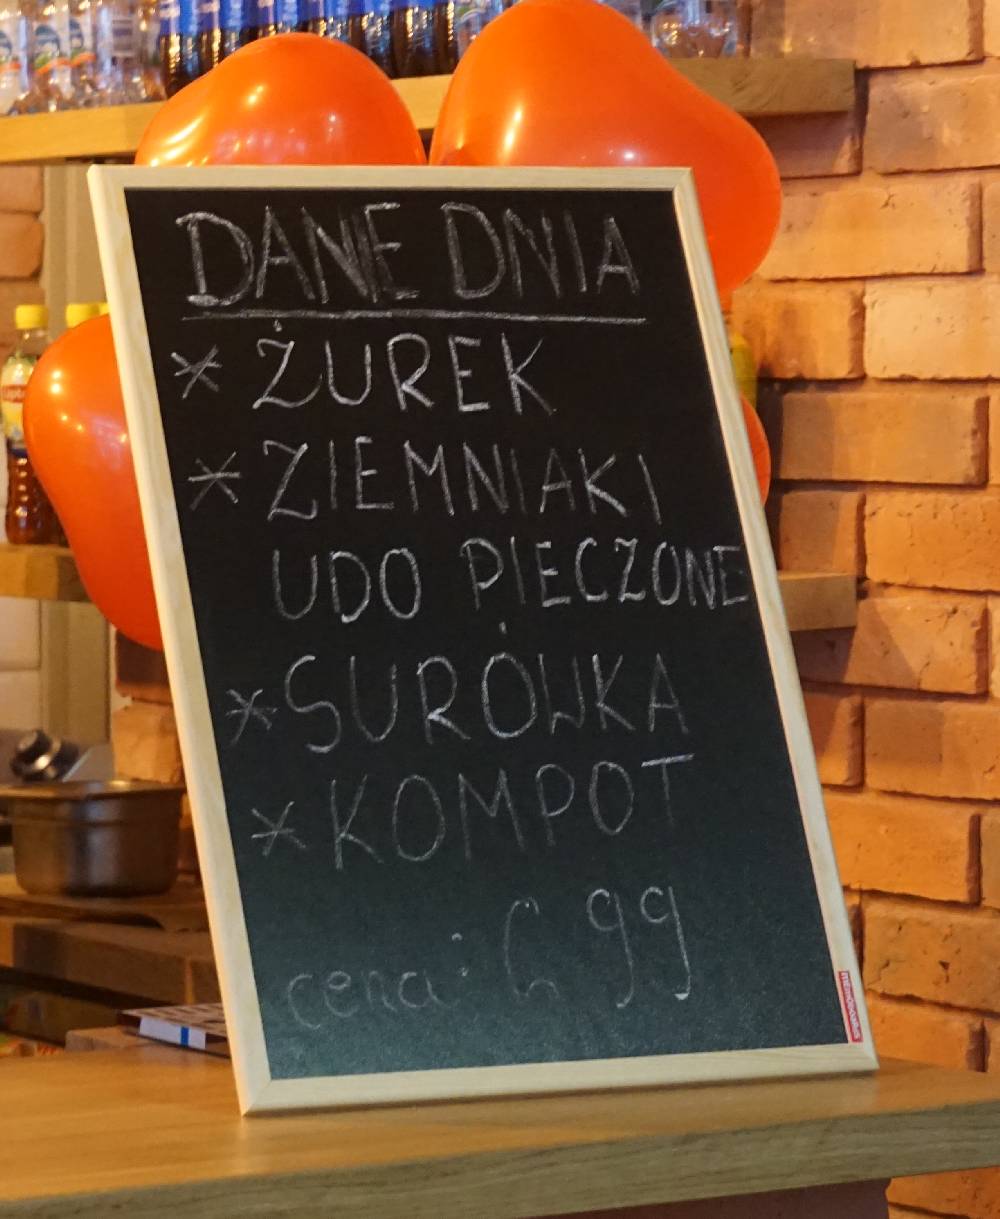 DANE DNIA
* ŻUREK
* ZIEMNIAKI
UDO PIECZONE
* SURÓWKA
* KOMPOT
cena: 99